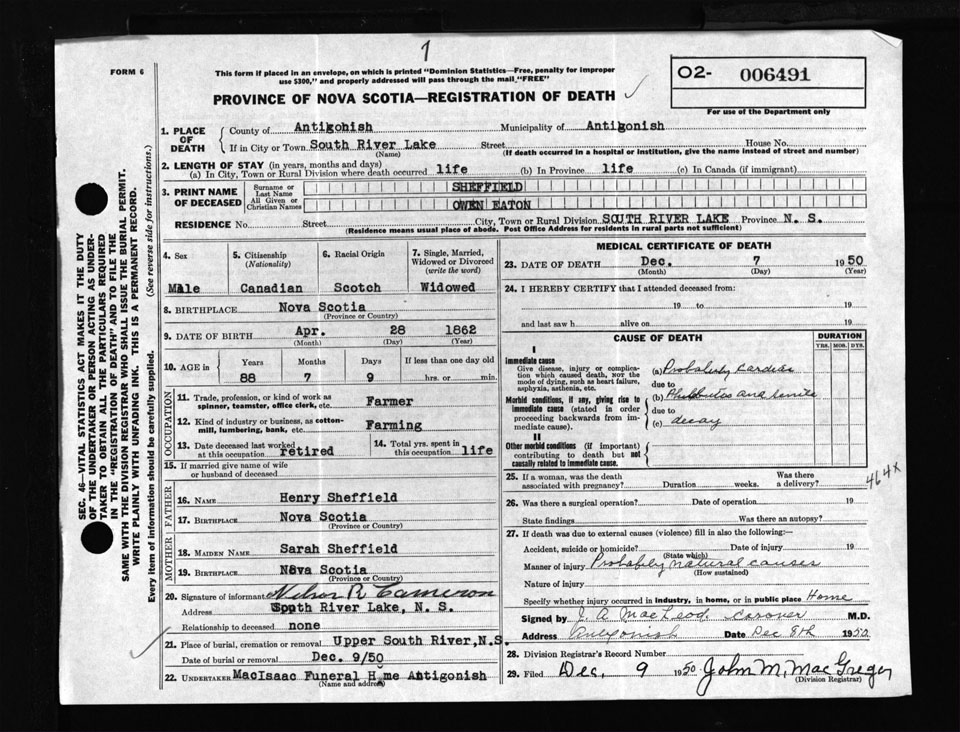 1
FORM 6
This form if placed in an envelope, on which is printed "Dominion Statistics—Free, penalty for improper
use $300," and properly addressed will pass through the mail "FREE"
O2- 006491
For use of the Department only
PROVINCE OF NOVA SCOTIA—REGISTRATION OF DEATH
SEC. 46—VITAL STATISTICS ACT MAKES IT THE DUTY
OF THE UNDERTAKER OR PERSON ACTING AS UNDER-
TAKER TO OBTAIN ALL THE PARTICULARS REQUIRED
IN THE "REGISTRATION OF DEATH" AND TO FILE THE
SAME WITH THE DIVISION REGISTRAR WHO SHALL ISSUE THE BURIAL PERMIT.
WRITE PLAINLY WITH UNFADING INK. THIS IS A PERMANENT RECORD.
Every item of information should be carefully supplied. (See reverse side for instructions.)
1. PLACE OF DEATH
County of Antikohish Municipality of Antigonish
If in City or Town South River Lake Street House No.
(Name) (If death occurred in a hospital or institution, give the name instead of street and number)
2. LENGTH OF STAY (in years, months and days)
(a) In City, Town or Rural Division where death occurred life (b) In Province life (c) In Canada (if immigrant)
3. PRINT NAME OF DECEASED
Surname or Last Name SHEFFIELD
All Given or Christian Names OWEN EATON
RESIDENCE No. Street City, Town or Rural Division SOUTH RIVER LAKE Province N. S.
(Residence means usual place of abode. Post Office Address for residents in rural parts not sufficient)
4. Sex
Male
5. Citizenship (Nationality)
Canadian
6. Racial Origin
Scotch
7. Single, Married, Widowed or Divorced (write the word)
Widowed
8. BIRTHPLACE Nova Scotia
(Province or Country)
9. DATE OF BIRTH Apr. 28 1862
(Month) (Day) (Year)
10. AGE in Years Months Days If less than one day old
88 7 9 hrs. or min.
OCCUPATION
11. Trade, profession, or kind of work as
spinner, teamster, office clerk, etc. Farmer
12. Kind of industry or business, as cotton-
mill, lumbering, bank, etc. Farming
13. Date deceased last worked
at this occupation retired
14. Total yrs. spent in
this occupation life
15. If married give name of wife
or husband of deceased
FATHER
16. NAME Henry Sheffield
17. BIRTHPLACE Nova Scotia
(Province or Country)
MOTHER
18. MAIDEN NAME Sarah Sheffield
19. BIRTHPLACE Nova Scotia
(Province or Country)
20. Signature of informant Nelson R Cameron
Address South River Lake, N. S.
Relationship to deceased none
21. Place of burial, cremation or removal Upper South River, N.S.
Date of burial or removal Dec. 9/50
22. UNDERTAKER MacIsaac Funeral Home Antigonish
(Name and address)
MEDICAL CERTIFICATE OF DEATH
23. DATE OF DEATH Dec. 7 1950
(Month) (Day) (Year)
24. I HEREBY CERTIFY that I attended deceased from:
19 to 19
and last saw h alive on 19
CAUSE OF DEATH
DURATION
YRS. MOS. DYS.
I
Immediate cause
Give disease, injury or complica-
tion which caused death, NOT the
mode of dying, such as heart failure,
asphyxia, asthenia, etc.
(a) Probably cardiac
due to
Morbid conditions, if any, giving rise to
immediate cause (stated in order
proceeding backwards from im-
mediate cause).
(b) and senile
due to
(c) decay
II
Other morbid conditions (if important)
contributing to death but not
causally related to immediate cause.
25. If a woman, was the death
associated with pregnancy? Duration weeks. Was there
a delivery?
464x
26. Was there a surgical operation? Date of operation 19
State findings Was there an autopsy?
27. If death was due to external causes (violence) fill in also the following:—
Accident, suicide or homicide? Date of injury 19
(State which)
Manner of injury Probably natural causes
(How sustained)
Nature of injury
Specify whether injury occurred in industry, in home, or in public place Home
Signed by J. A MacLeod coroner M.D.
Address Antigonish Date Dec 8th 1950
28. Division Registrar's Record Number
29. Filed Dec. 9 1950 John M. MacGregor
(Division Registrar)